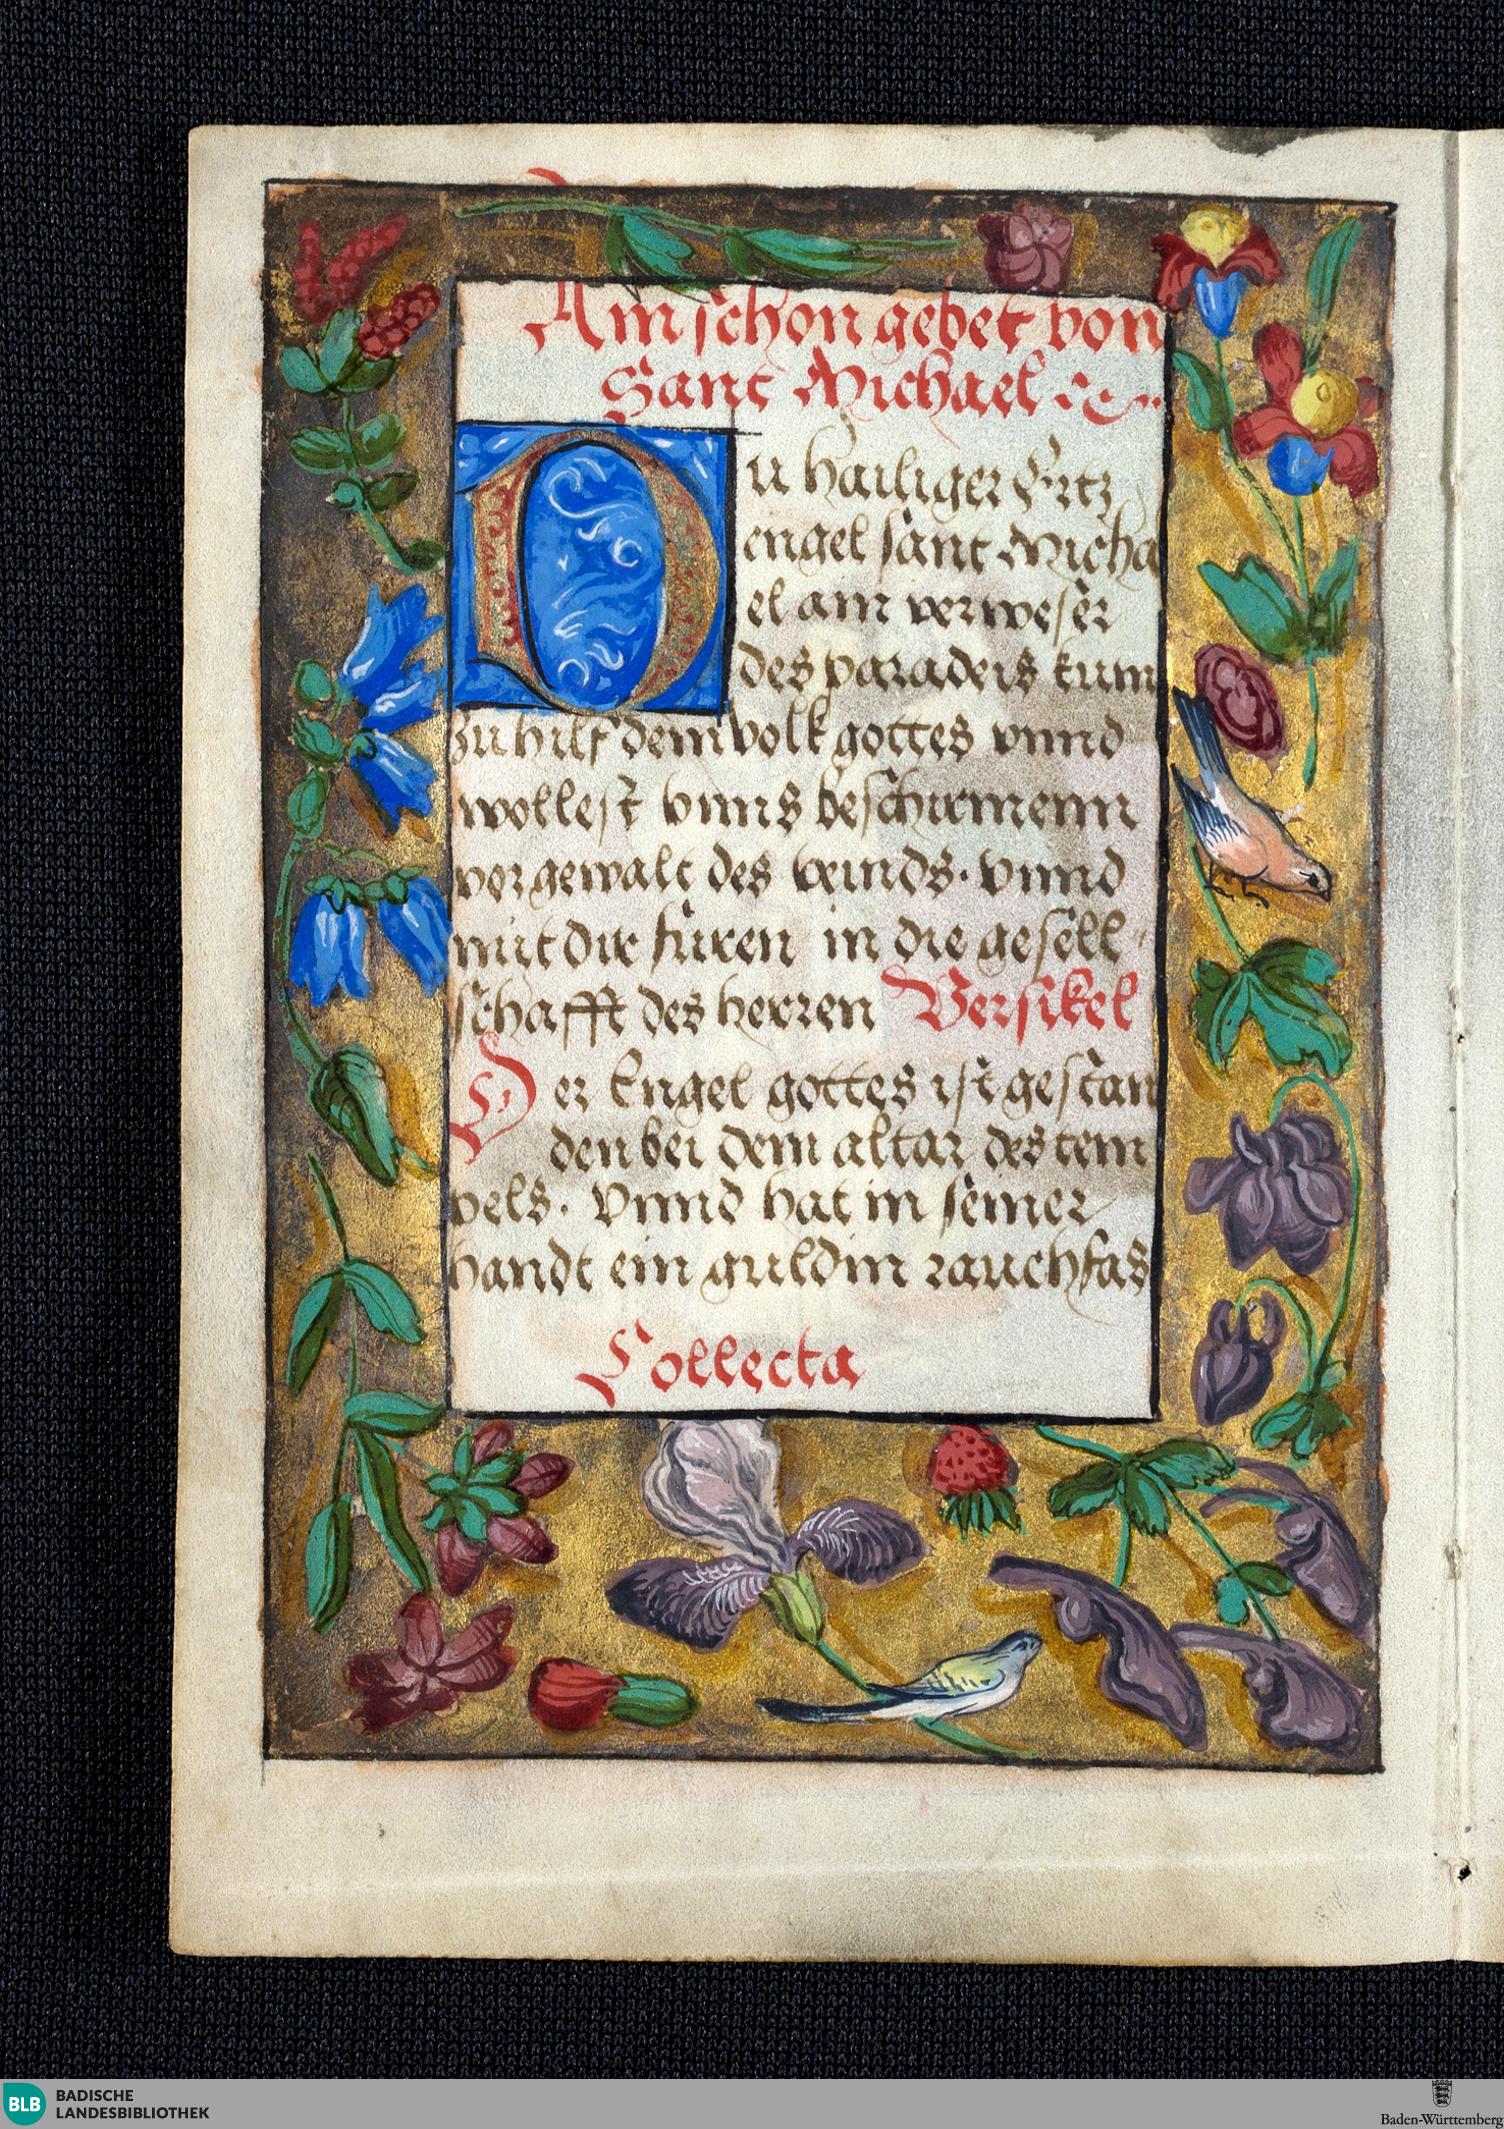 Ain schon gebet von
Sanct Michael ꝛc.
DU hailiger Ertz
engel sanct Micha
el ain verweser
des paradeis kum
zu hilf dem volk gottes vnnd
wollest vnns beschirmenn
vor gewalt des veinds. Vnnd
mit dir füren in die gesell-
schafft des herren Versikel
Der Engel gottes ist gestan
den bei dem altar des tem
pels. Vnnd hat in seiner
handt ein guldin rauchfas
Collecta
BLB BADISCHE
LANDESBIBLIOTHEK
Baden-Württemberg